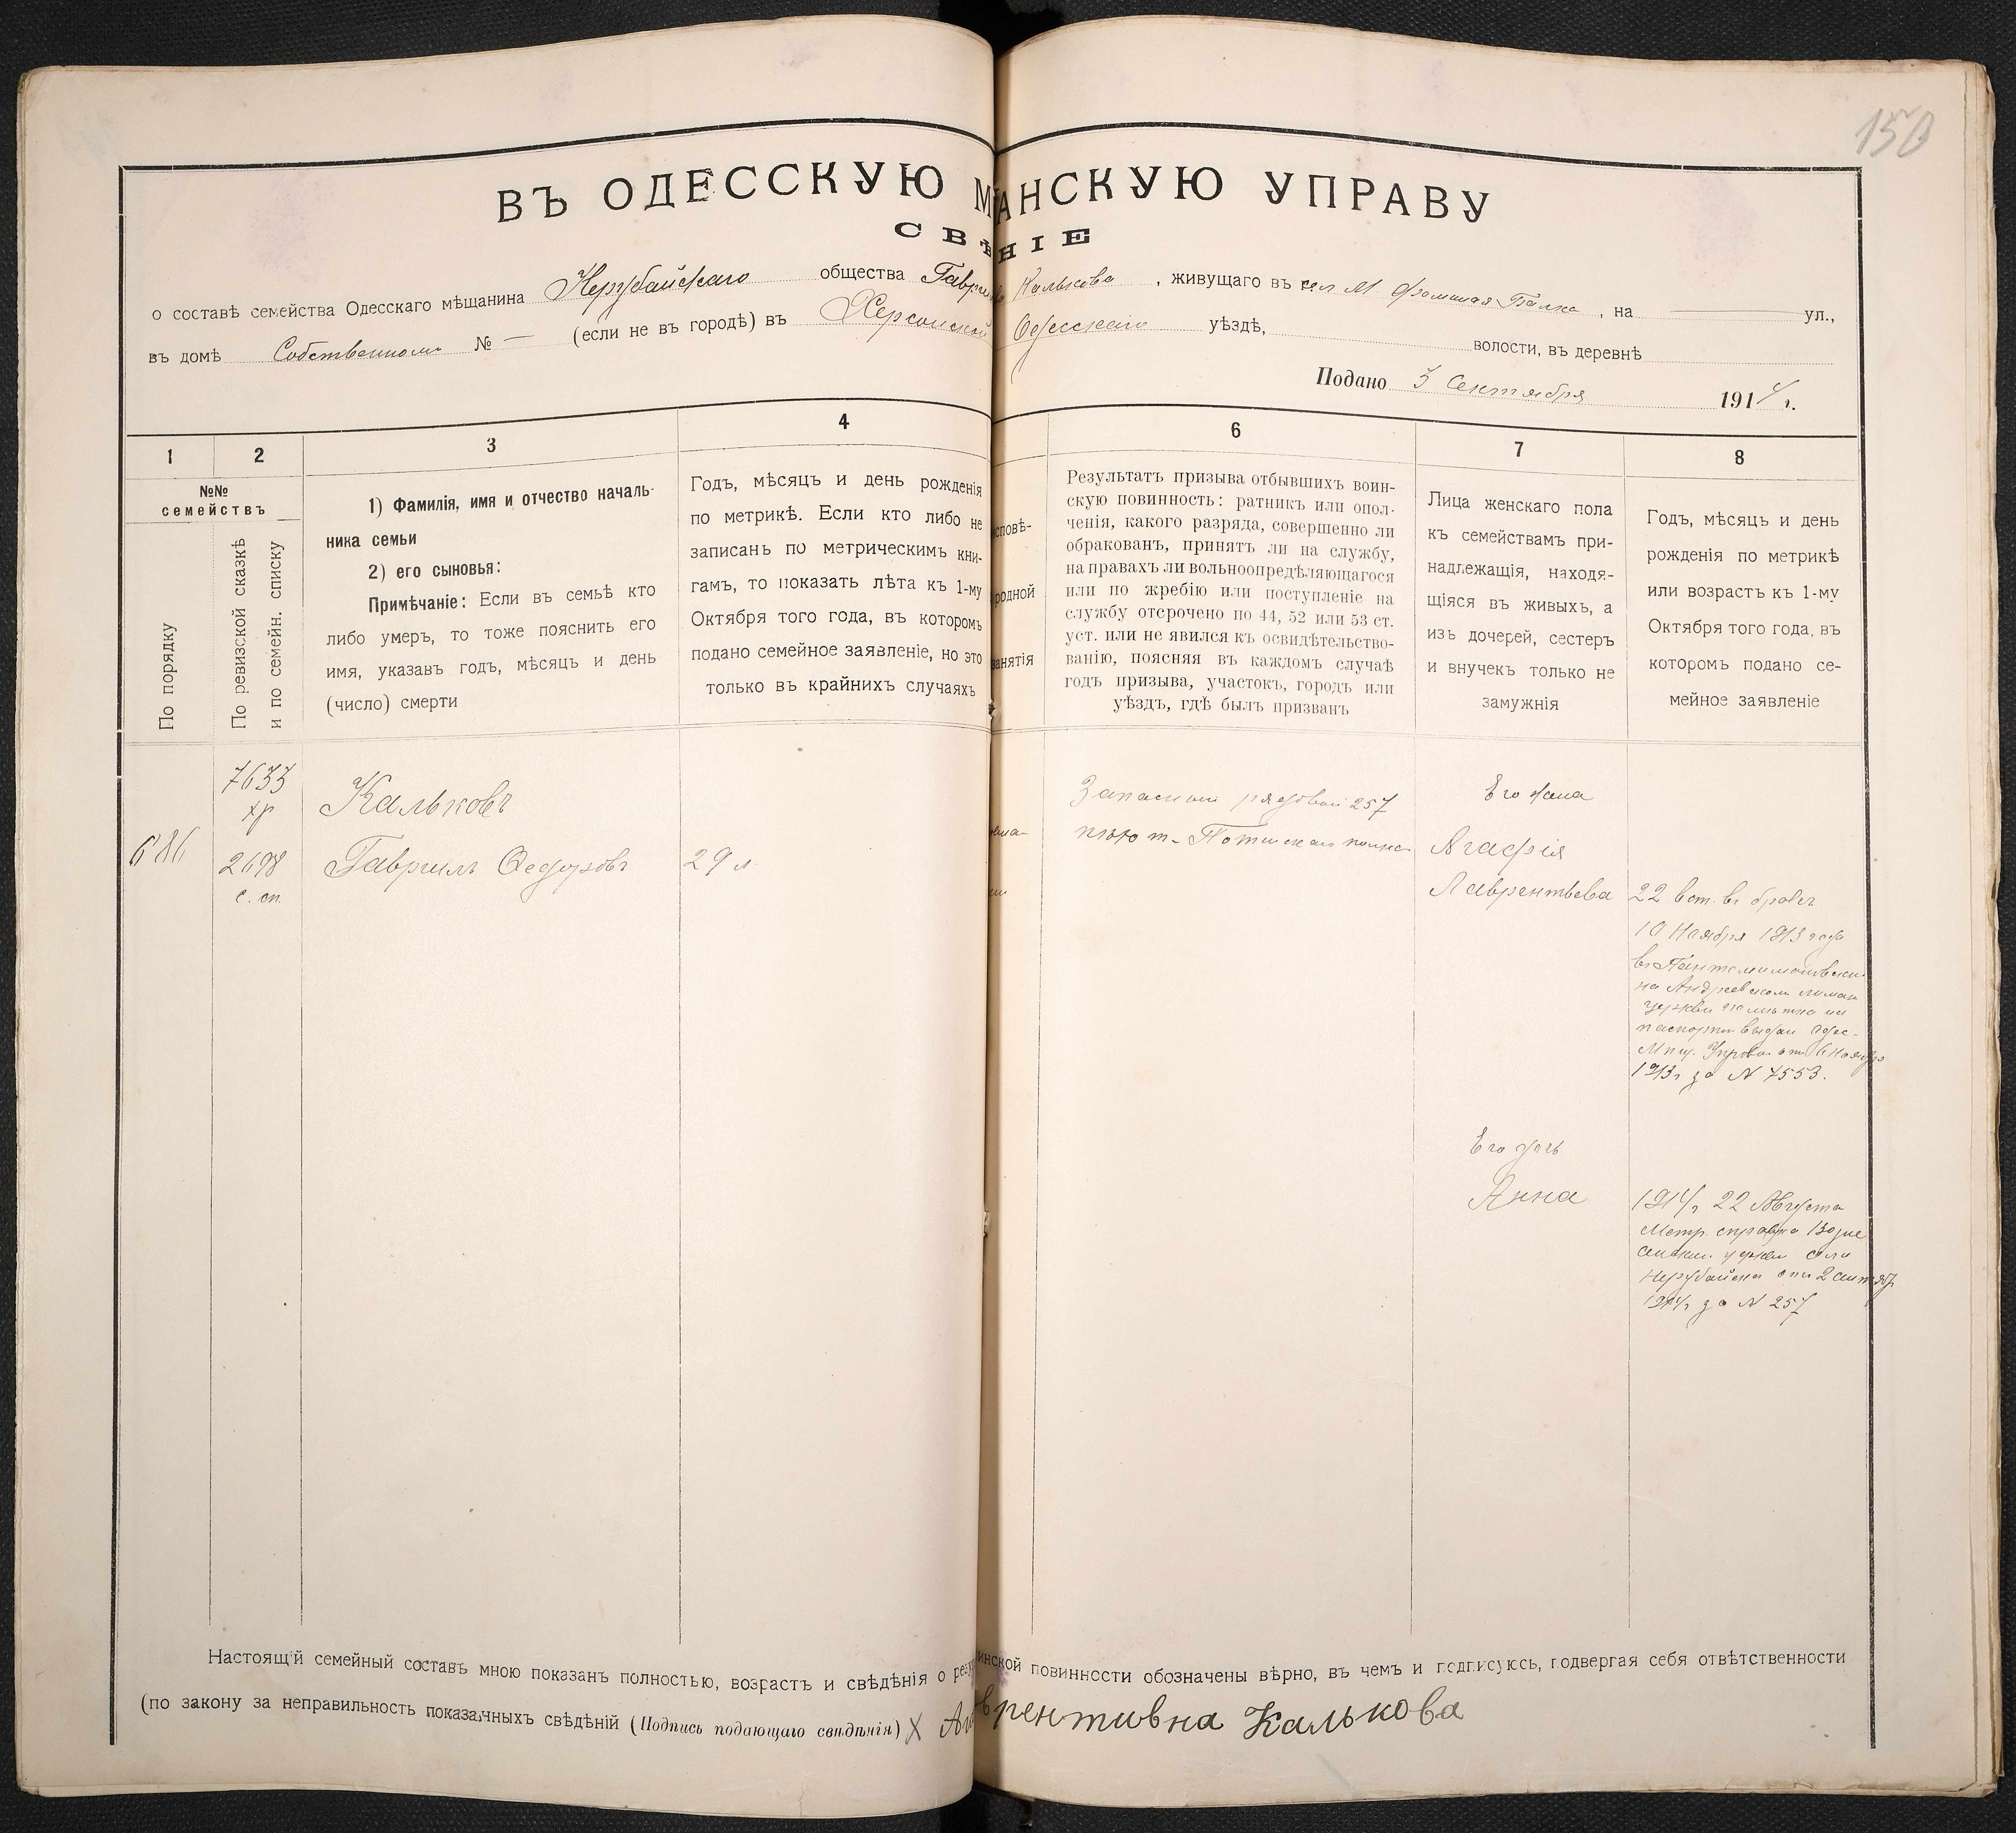 150
ВЪ ОДЕССКУЮ М АНСКУЮ УПРАВУ
СВѢ НІЕ
о составѣ семейства Одесскаго мѣщанина Нерубайскаго общества Гаври Калькова, живущаго въ сел М Фомина Балка, на — ул.,
въ домѣ Собственномъ № — (если не въ городѣ) въ Херсонской Одесскаго уѣздѣ, волости, въ деревнѣ
Подано 3 Сентября 1914 г.
1
2
3
4
6
7
8
№№
семействъ
По порядку
По ревизской сказкѣ
и по семейн. списку
1) Фамилія, имя и отчество началь-
ника семьи
2) его сыновья:
Примѣчаніе: Если въ семьѣ кто
либо умеръ, то тоже пояснить его
имя, указавъ годъ, мѣсяцъ и день
(число) смерти
Годъ, мѣсяцъ и день рожденія
по метрикѣ. Если кто либо не
записанъ по метрическимъ кни-
гамъ, то показать лѣта къ 1-му
Октября того года, въ которомъ
подано семейное заявленіе, но это
только въ крайнихъ случаяхъ
исповѣ-
родной
занятія
Результатъ призыва отбывшихъ воин-
скую повинность: ратникъ или опол-
ченія, какого разряда, совершенно ли
обракованъ, принятъ ли на службу,
на правахъ ли вольноопредѣляющагося
или по жребію или поступленіе на
службу отсрочено по 44, 52 или 53 ст.
уст. или не явился къ освидѣтельство-
ванію, поясняя въ каждомъ случаѣ
годъ призыва, участокъ, городъ или
уѣздъ, гдѣ былъ призванъ
Лица женскаго пола
къ семействамъ при-
надлежащія, находя-
щіяся въ живыхъ, а
изъ дочерей, сестеръ
и внучекъ только не
замужнія
Годъ, мѣсяцъ и день
рожденія по метрикѣ
или возрастъ къ 1-му
Октября того года, въ
которомъ подано се-
мейное заявленіе
686
7633
хр
2698
с. сп.
Кальковъ
Гавріилъ Ѳедоровъ
29 л.
Запасной рядовой 257
пѣхот. Потійскаго полка
Его жена
Агафія
Лаврентьева
22 вст. въ бракъ
10 Ноября 1913 года
въ Пантелимоновской
на Андреевскомъ лиманѣ
церкви отмѣтка на
паспортѣ выдан Одес-
Мѣщ. Управы от 6 Ноября
1913 г за N 7553.
Его дочь
Анна
1914 г 22 Августа
Метр. справка Возне
сенской церкви села
Нерубайска отъ 2 сентябр
1914 г за N 257
Настоящій семейный составъ мною показанъ полностью, возрастъ и свѣдѣнія о резу инской повинности обозначены вѣрно, въ чемъ и подписуюсь, подвергая себя отвѣтственности
(по закону за неправильность показанныхъ свѣдѣній (Подпись подающаго свѣдѣнія) X Аг врентивна Калькова